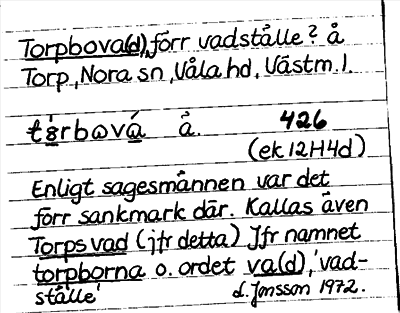 Torpbova(d), förr vadställe? å
Torp, Nora sn, Våla hd, Västm. l.
tɜ́rbɷvá å. 426
(ek 12H4d)
Enligt sagesmannen var det
förr sankmark där. Kallas även
Torpsvad (jfr detta) Jfr namnet
torpborna o. ordet va(d), 'vad-
ställe' d. Jonsson 1972.